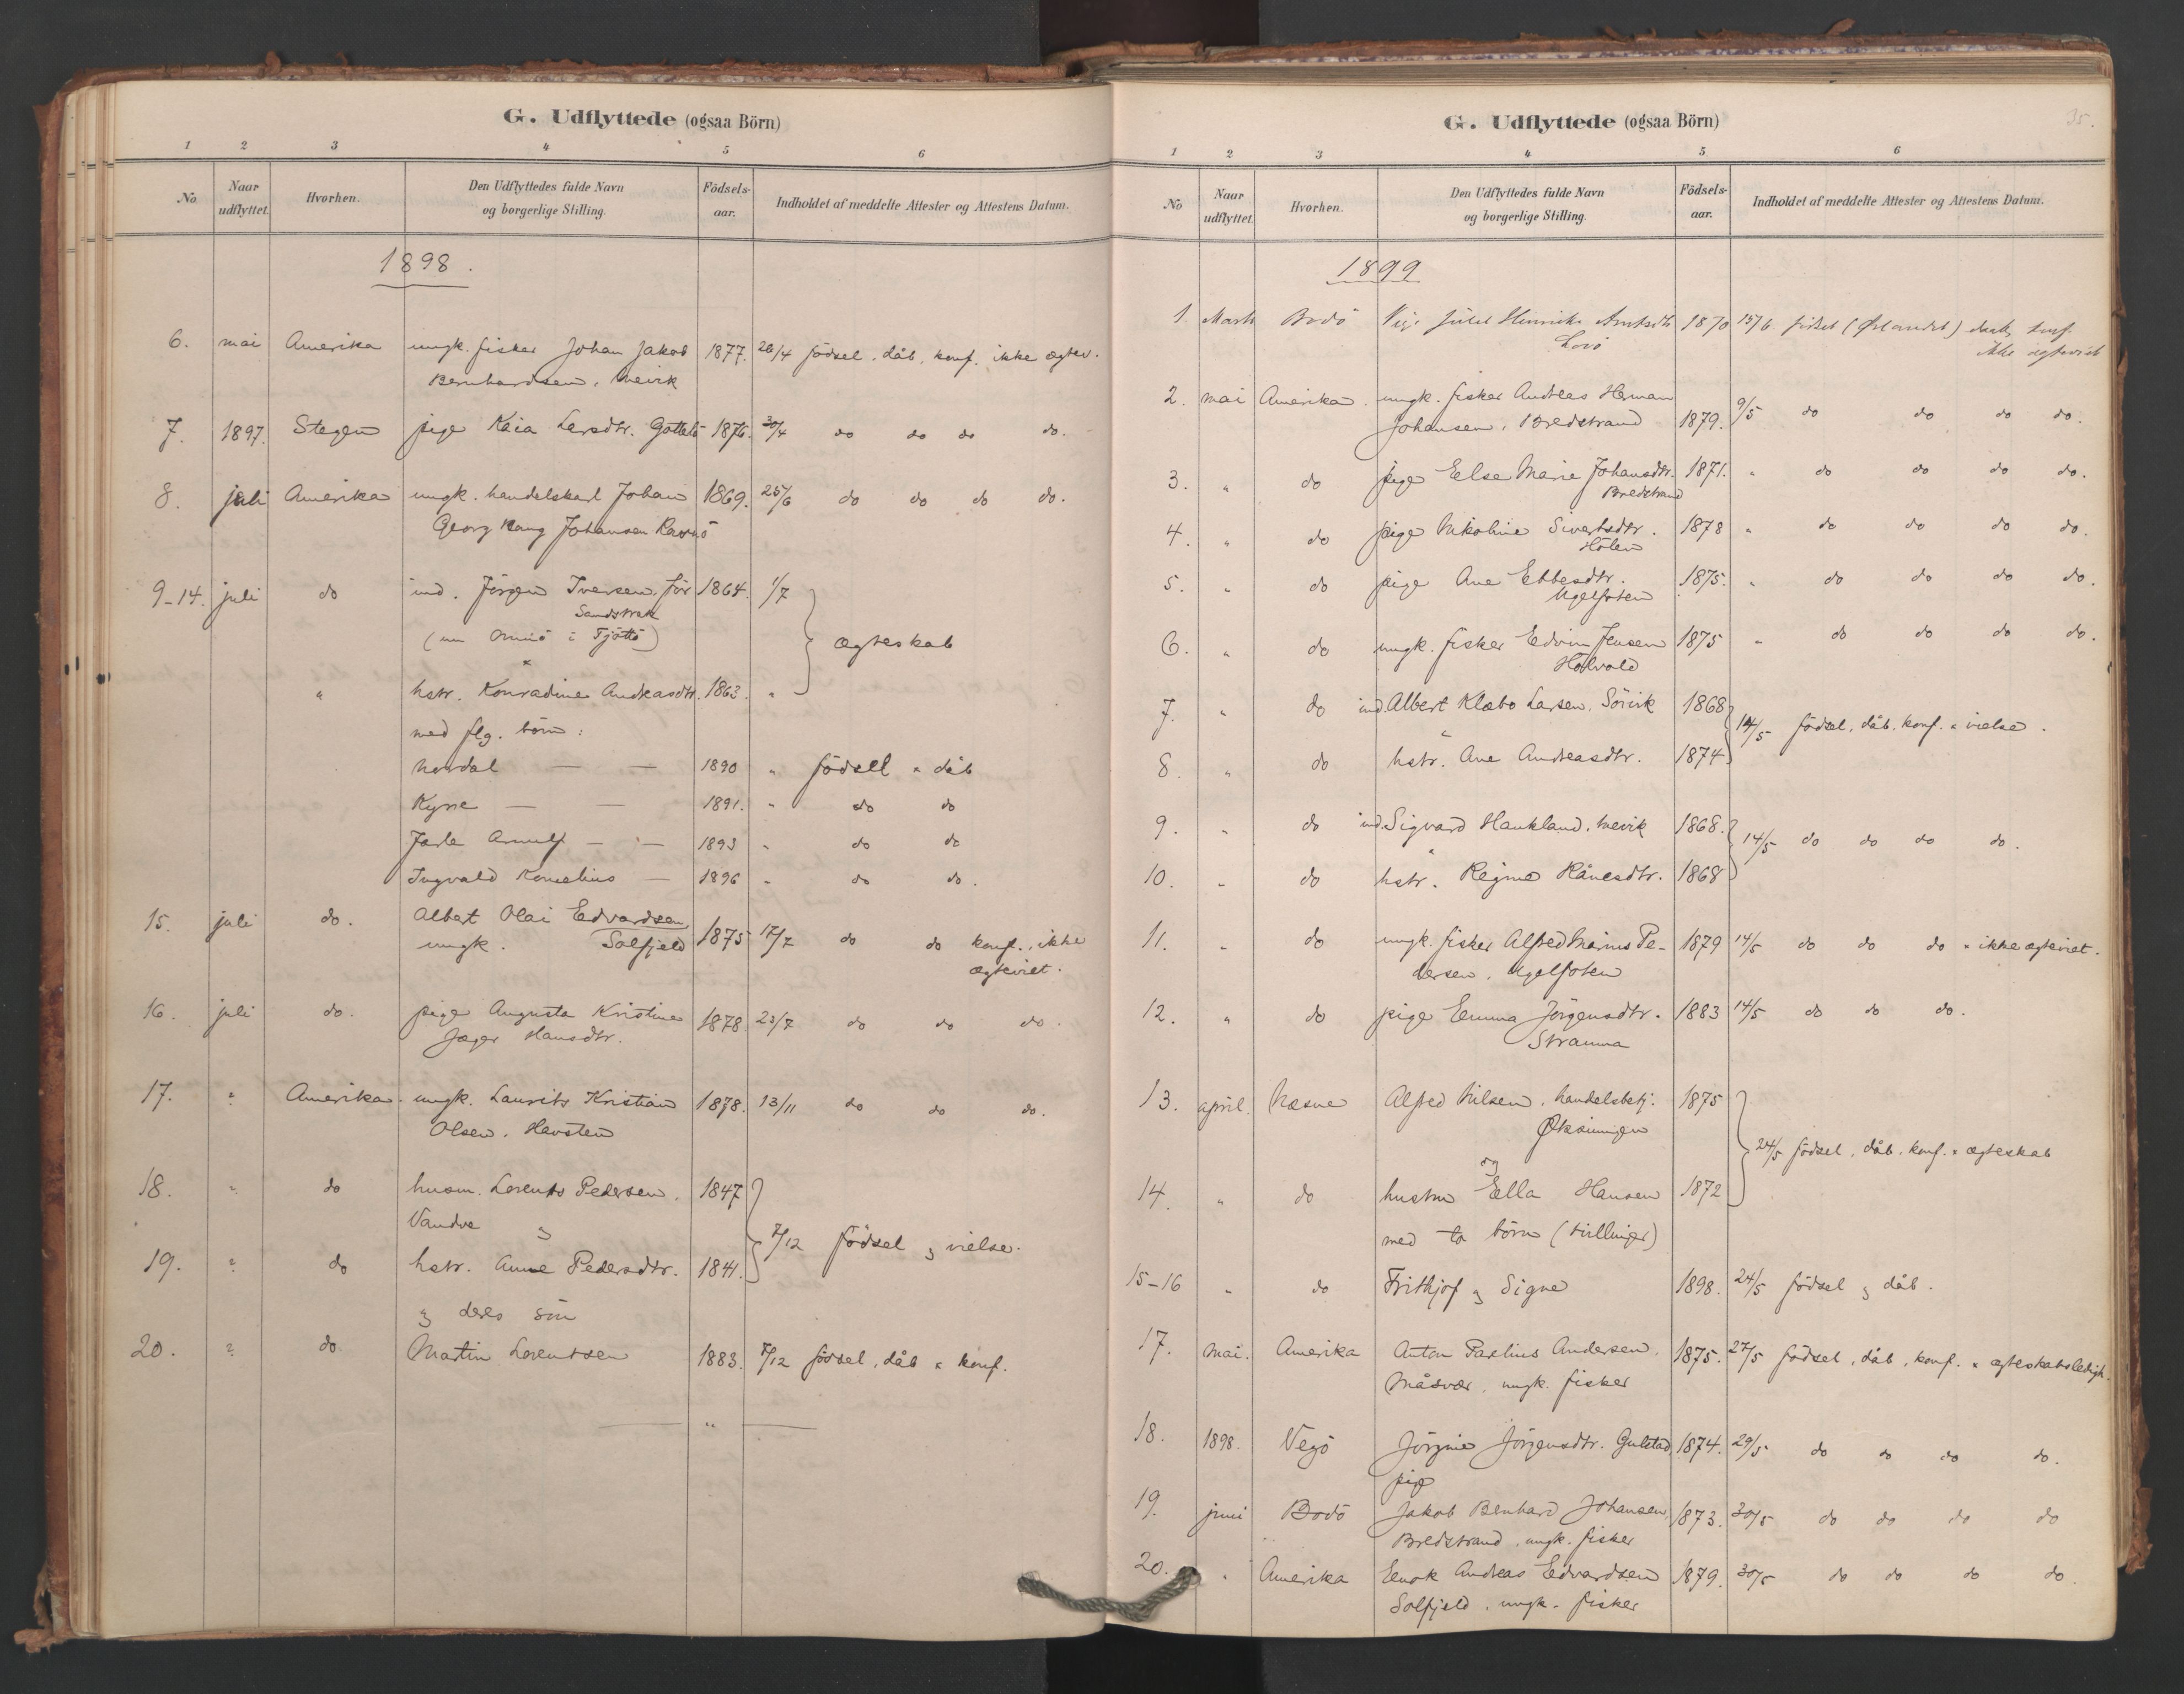 G. Udflyttede (ogsaa Börn)
1 2 3 4 5 6
No Naar udflyttet. Hvorhen. Den Udflyttedes fulde Navn og borgerlige Stilling. Födsels-aar. Indholdet af meddelte Attester og Attestens Datum.
1898.
6. mai Amerika ungk. fisker Johan Jakob 1877. 26/4 födsel, dåb, konf. ikke ægtev.
Bernhardsen,
7. 1897. Stegen pige Kaia Larsdtr. 1876. 30/4 do do do do.
8. juli Amerika ungk. handelskarl Johan 1869. 25/6 do do do do.
Georg Johansen
9-14. juli do ind. Jörgen Iversen, för 1864. 1/7
Sandstrak
(nu i Tjöttö) ægteskab
" hstr. Konradine Andreasdtr. 1863. "
med flg. börn:
Nordal — — 1890 " födsel " dåb
Kyrre — — 1891. " do do
Jarle Arnulf — — 1893 " do do
Ingvald Kornelius — 1896 " do do.
15. juli do. Albert Olai Edvardsen 1875 17/7 do do konf., ikke
ungk. Solfjeld ægteviet.
16. juli do. pige Augusta Kristine 1878. 23/7 do do do.
Jæger Hansdtr.
17. " Amerika ungk. Laurits Kristian 1878. 13/11 do do do.
Olsen. Hersten
18. " do husm. Lorents Pedersen, 1847
Vandve og 7/12 födsel og vielse.
19. " do hstr. Anne Pedersdtr. 1841.
og deres sön
20. " do Martin Lorentsen 1883. 7/12 födsel, dåb " konf.
— " —
G. Udflyttede (ogsaa Börn)
35.
1 2 3 4 5 6
No Naar udflyttet. Hvorhen. Den Udflyttedes fulde Navn og borgerlige Stilling. Födsels-aar. Indholdet af meddelte Attester og Attestens Datum.
1899
1. Marts Bodö Pige 1870 15/6 födsel daab, konf.
Lovö ikke ægteviet
2. mai Amerika ungk. fisker Andreas Herman
Johansen, Bredstrand 1879. 9/5 do do do do.
3. " do pige Else Marie Johansdtr. 1871. " do do do do.
Bredstrand
4. " do pige Nikoline Sivertsdtr. 1878 " do do do do.
Hölen
5. " do pige Ane Ebbesdtr. 1875. " do do do do.
Ugelfoten
6. " do ungk. fisker Edvin Jensen 1875 " do do do do.
7. " do ind. Albert Klæbo Larsen, Sörvik 1868
14/5 födsel, dåb, konf. " vielse.
8. " do hstr. Ane Andreasdtr. 1874
9. " do ind. Sigvard Haukland, 1868.
14/5 do do do do.
10. " do hstr. Regine Rånesdtr. 1868
11. " do ungk. fisker Alfred Marius Pe- 1879 14/5 do do do " ikke ægteviet.
dersen, Ugelfoten
12. " do pige Emma Jörgensdtr. 1883 14/5 do do do.
Stramma
13. april. Næsne Alfred Nilsen, handelsbetj. 1875
Öksningen
og 24/5 födsel, dåb, konf. " ægteskab
14. " do hustru Ella Hansen 1872
med to börn (tvillinger)
15-16 " do Frithjof og Signe 1898. 24/5 födsel og dåb.
17. mai. Amerika Anton Parlius Andersen, 1875. 27/5 födsel, dåb, konf. " ægteskabsledigh.
Måsvær, ungk. fisker
18. 1898. Vegö Jörgine Jörgensdtr. Gulstad 1874. 29/5 do do do do.
pige
19. juni Bodö Jakob Benhard Johansen, 1873. 30/5 do do do do
Bredstrand, ungk. fisker
20. " Amerika Enok Andreas Edvardsen 1879. 30/5 do do do do.
Solfjeld, ungk. fisker